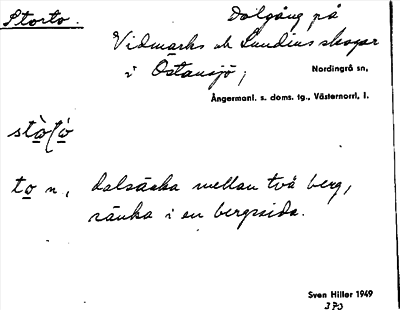 Storto.
Dalgång på
Vidmarks och Lundins skogar
i Östansjö,
Nordingrå sn,
Ångermanl. s. doms. tg., Västernorrl. l.
to n, dalsänka mellan två berg,
ränka i en bergssida.
Sven Hiller 1949